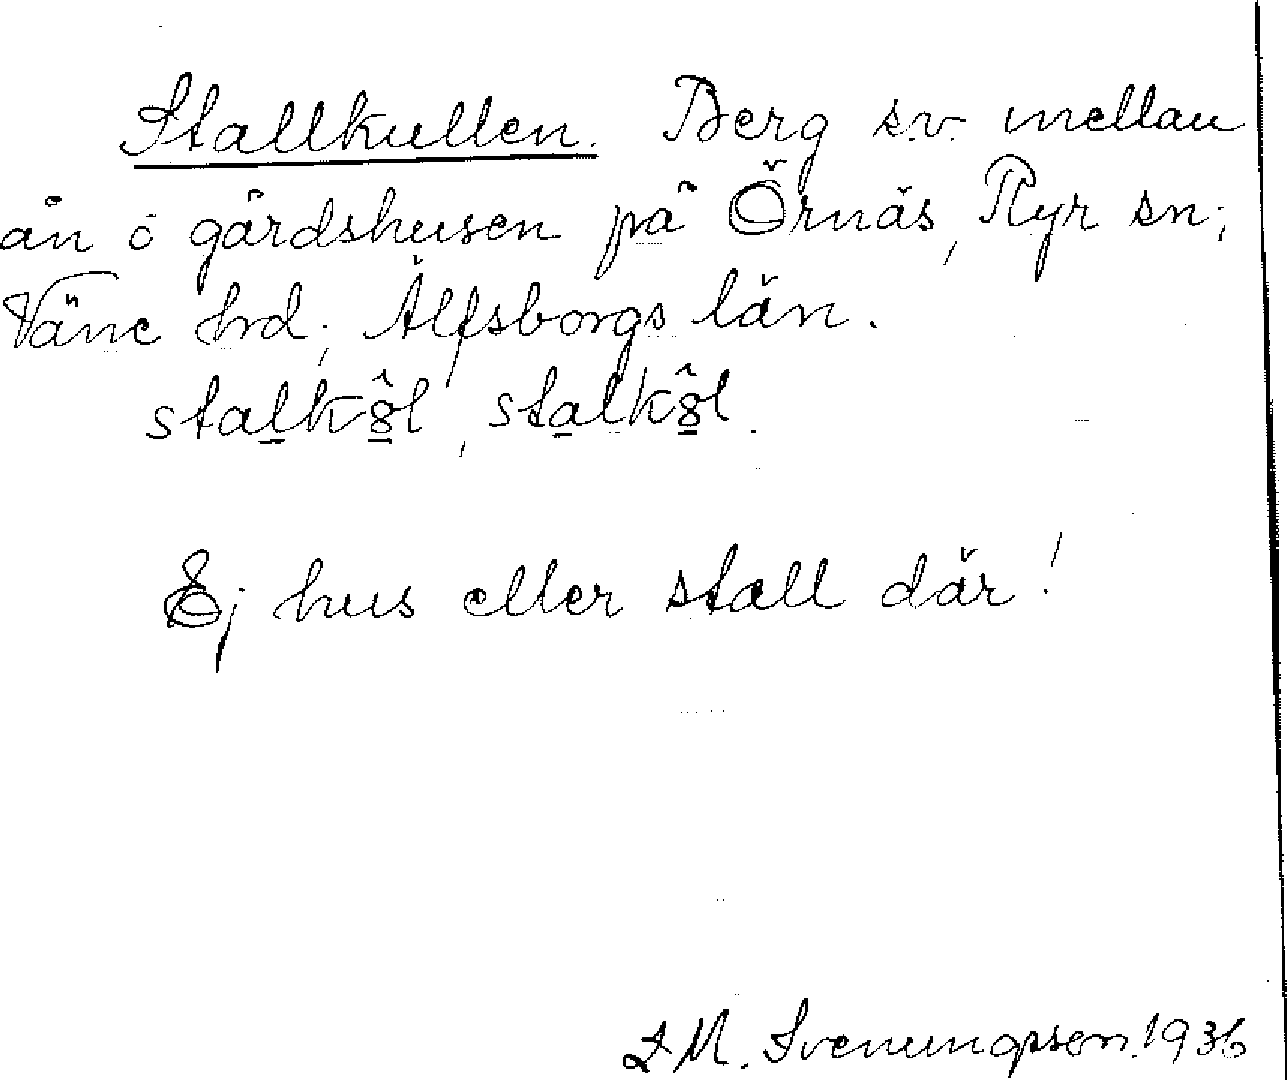 Stallkullen. Berg s.v. mellan
ån o gårdshusen på Örnäs, Ryr sn;
Väne hrd; Älfsborgs län.
Ej hus eller stall där!
Svenungsson. 1936